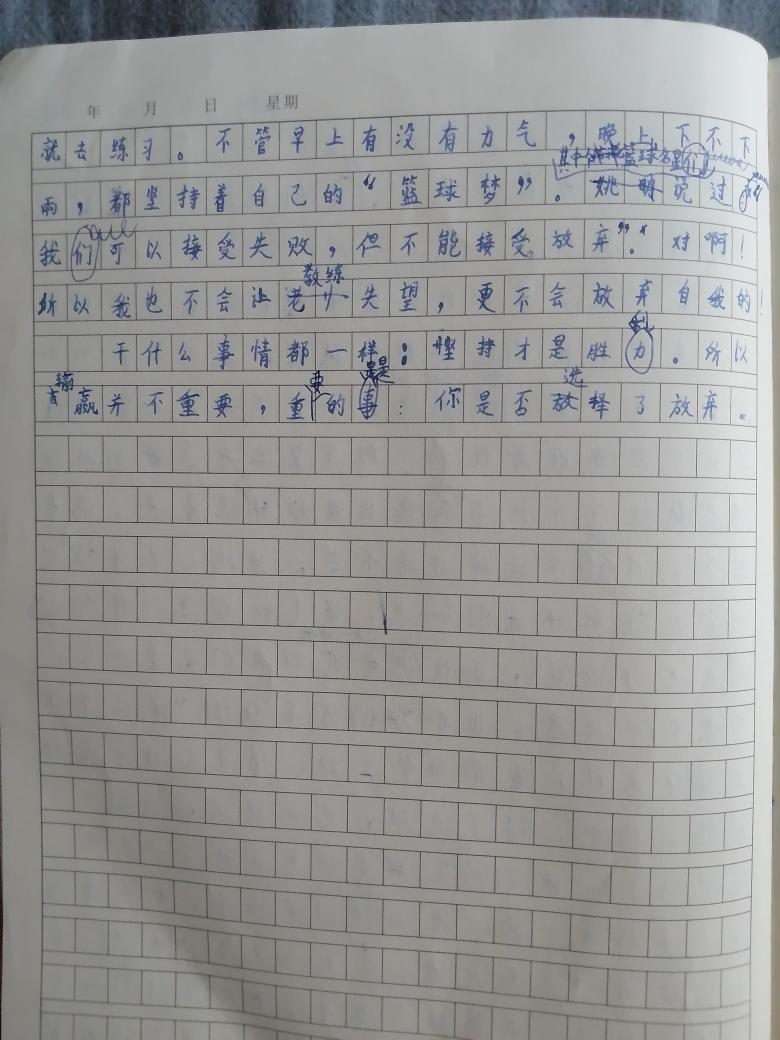 年 月 日 星期
就去练习。不管早上有没有力气,晚上下不下
其中 篮球名星们
雨,都坚持着自己的“篮球梦”。姚明说过
我们可以接受失败,但不能接受放弃”。对啊!
教练
所以我也不会让老 失望,更不会放弃自我的!
利
干什么事情都一样:坚持才是胜力。所以
输 要 是 选
赢并不重要,重的事:你是否放择了放弃。